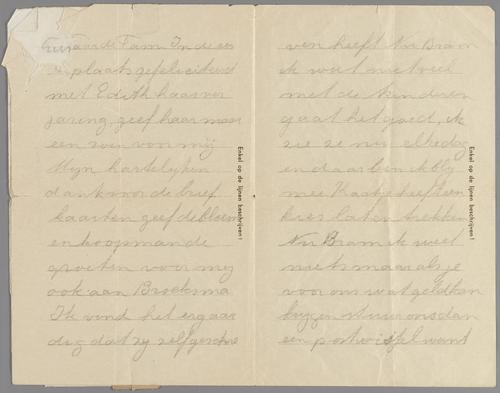 Geaarde Fam. In de eer
ste plaats gefeliciteerd
met Edith haar ver
jaring, geef haar maar
een zoen van mij
Mijn hartelijken
dank voor de brief
kaarten geef de bloem
en koopman de
groeten voor mij
ook aan Broeksma
Ik vind het erg aar
dig dat zij zelf geschre
Enkel op de lijnen beschrijven!
ven heeft Nu Bram
ik weet niet veel
met de kinderen
gaat het goed, ik
zie ze nu elke dag
en daar ben ik blij
mee Kaatje heeft een
kies laten trekken
Nu Bram ik weet
niets maar als je
voor ons wat geld kan
krijgen stuur ons dan
een postwissel want
Enkel op de lijnen beschrijven!